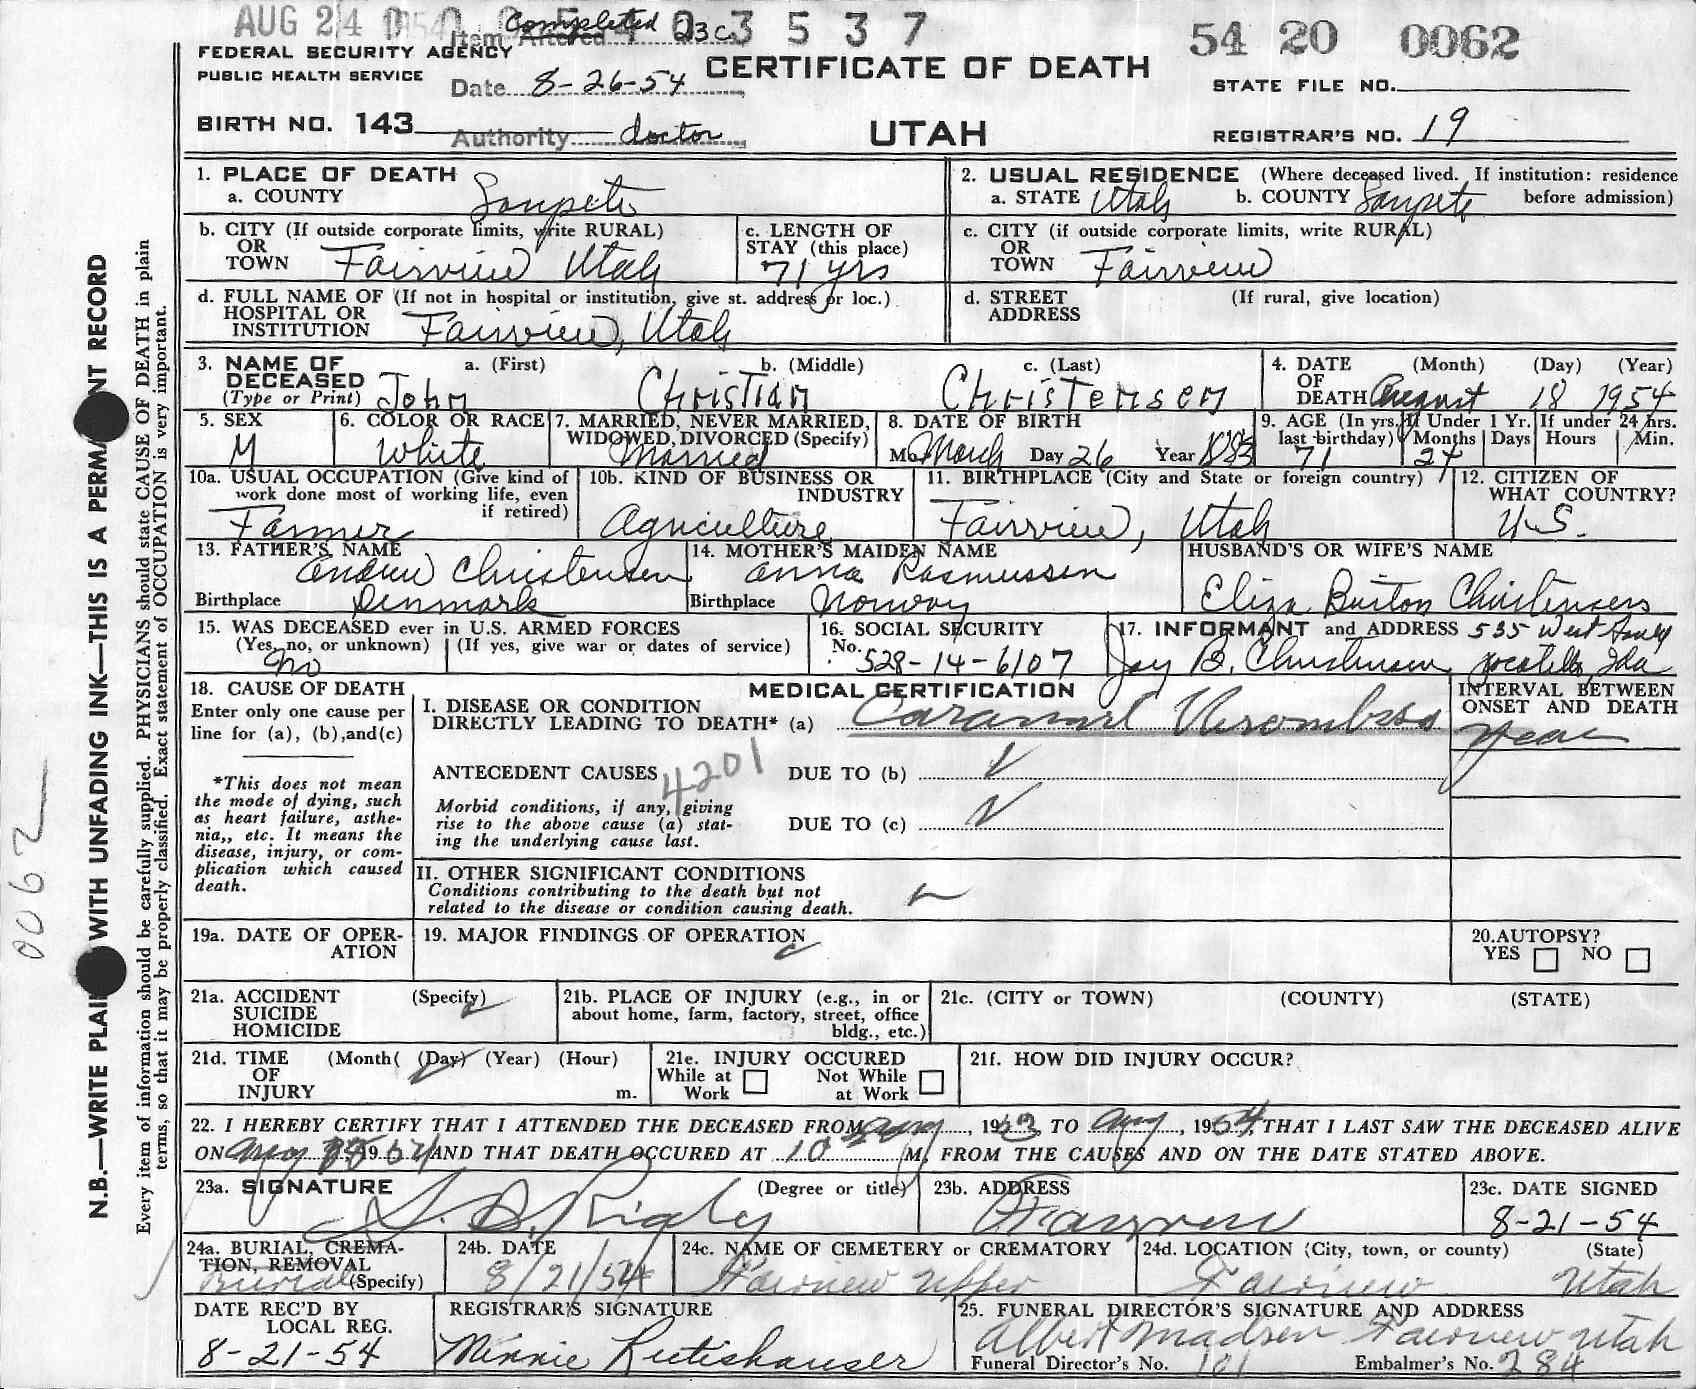 AUG 24 1954 3537 54 20 0062
Completed
Item Altered 23c
FEDERAL SECURITY AGENCY
PUBLIC HEALTH SERVICE
Date 8-26-54
CERTIFICATE OF DEATH
STATE FILE NO.
BIRTH NO. 143
Authority doctor
UTAH
REGISTRAR'S NO. 19
1. PLACE OF DEATH
a. COUNTY Sanpete
2. USUAL RESIDENCE (Where deceased lived. If institution: residence
a. STATE Utah b. COUNTY Sanpete before admission)
b. CITY (If outside corporate limits, write RURAL)
OR
TOWN Fairview Utah
c. LENGTH OF
STAY (this place)
71 yrs
c. CITY (if outside corporate limits, write RURAL)
OR
TOWN Fairview
d. FULL NAME OF (If not in hospital or institution, give st. address or loc.)
HOSPITAL OR
INSTITUTION Fairview, Utah
d. STREET (If rural, give location)
ADDRESS
3. NAME OF a. (First) b. (Middle) c. (Last)
DECEASED
(Type or Print) John Christian Christensen
4. DATE (Month) (Day) (Year)
OF
DEATH August 18 1954
5. SEX
M
6. COLOR OR RACE
White
7. MARRIED, NEVER MARRIED,
WIDOWED, DIVORCED (Specify)
Married
8. DATE OF BIRTH
Mo. March Day 26 Year 1883
9. AGE (In yrs. If Under 1 Yr. If under 24 hrs.
last birthday) Months Days Hours Min.
71
10a. USUAL OCCUPATION (Give kind of
work done most of working life, even
if retired)
Farmer
10b. KIND OF BUSINESS OR
INDUSTRY
Agriculture
11. BIRTHPLACE (City and State or foreign country)
Fairview, Utah
12. CITIZEN OF
WHAT COUNTRY?
U.S.
13. FATHER'S NAME
Andrew Christensen
Birthplace Denmark
14. MOTHER'S MAIDEN NAME
Anna Rasmussen
Birthplace Norway
HUSBAND'S OR WIFE'S NAME
Eliza Burton Christensen
15. WAS DECEASED ever in U.S. ARMED FORCES
(Yes, no, or unknown) (If yes, give war or dates of service)
no
16. SOCIAL SECURITY
No. 528-14-6107
17. INFORMANT and ADDRESS 535 West
Jay B. Christensen Pocatello, Ida
18. CAUSE OF DEATH
Enter only one cause per
line for (a), (b),and(c)
MEDICAL CERTIFICATION
I. DISEASE OR CONDITION
DIRECTLY LEADING TO DEATH* (a)
INTERVAL BETWEEN
ONSET AND DEATH
Year
*This does not mean
the mode of dying, such
as heart failure, asthe-
nia,, etc. It means the
disease, injury, or com-
plication which caused
death.
ANTECEDENT CAUSES 4201 DUE TO (b)
Morbid conditions, if any, giving
rise to the above cause (a) stat-
ing the underlying cause last.
DUE TO (c)
II. OTHER SIGNIFICANT CONDITIONS
Conditions contributing to the death but not
related to the disease or condition causing death.
19a. DATE OF OPER-
ATION
19. MAJOR FINDINGS OF OPERATION
20. AUTOPSY?
YES NO
21a. ACCIDENT (Specify)
SUICIDE
HOMICIDE
21b. PLACE OF INJURY (e.g., in or
about home, farm, factory, street, office
bldg., etc.)
21c. (CITY or TOWN) (COUNTY) (STATE)
21d. TIME (Month( (Day) (Year) (Hour)
OF
INJURY m.
21e. INJURY OCCURED
While at Not While
Work at Work
21f. HOW DID INJURY OCCUR?
22. I HEREBY CERTIFY THAT I ATTENDED THE DECEASED FROM Aug, 1953, TO Aug, 1954, THAT I LAST SAW THE DECEASED ALIVE
ON Aug 18 1954 AND THAT DEATH OCCURED AT 10 M, FROM THE CAUSES AND ON THE DATE STATED ABOVE.
23a. SIGNATURE (Degree or title)
Rigby
23b. ADDRESS
Fairview
23c. DATE SIGNED
8-21-54
24a. BURIAL, CREMA-
TION, REMOVAL
Burial (Specify)
24b. DATE
8/21/54
24c. NAME OF CEMETERY or CREMATORY
Fairview Upper
24d. LOCATION (City, town, or county) (State)
Fairview Utah
DATE REC'D BY
LOCAL REG.
8-21-54
REGISTRAR'S SIGNATURE
Minnie Rutishauser
25. FUNERAL DIRECTOR'S SIGNATURE AND ADDRESS
Albert Madsen Fairview Utah
Funeral Director's No. 101 Embalmer's No. 284
N.B.—WRITE PLAI WITH UNFADING INK—THIS IS A PERMA NT RECORD
Every item of information should be carefully supplied. PHYSICIANS should state CAUSE OF DEATH in plain
terms, so that it may be properly classified. Exact statement of OCCUPATION is very important.
0062